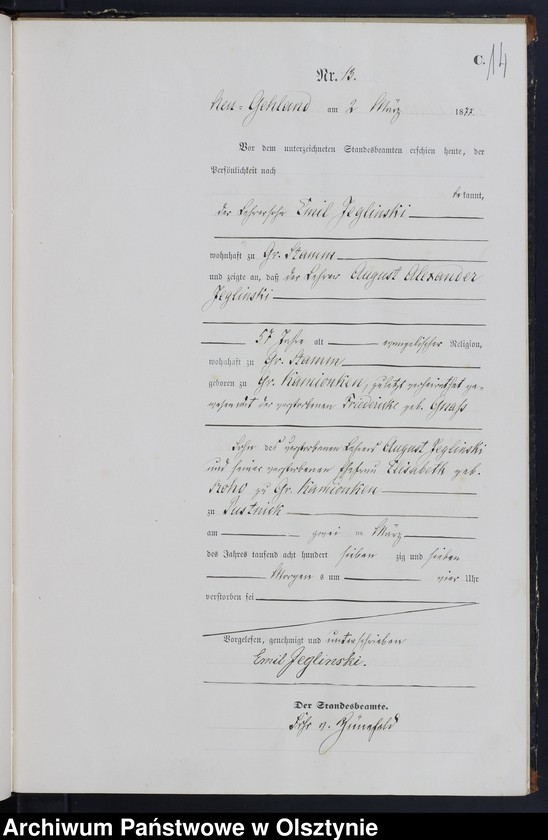 C. 14
Nr. 13.
Neu-Gehland am 2 März 1877
Vor dem unterzeichneten Standesbeamten erschien heute, der
Persönlichkeit nach
bekannt,
der Lehrersohn Emil Jeglinski
wohnhaft zu Gr. Stamm
und zeigte an, daß der Lehrer August Alexander
Jeglinski
57 Jahre alt evangelischer Religion,
wohnhaft zu Gr. Stamm
geboren zu Gr. Kamionken, zuletzt verheirathet ge-
wesen mit der verstorbenen Friedericke geb. Gnass
Sohn des verstorbenen Lehrers August Jeglinski
und seiner verstorbenen Ehefrau Elisabeth geb.
zu Gr. Kamionken
zu Pustnick
am zwei ten März
des Jahres tausend acht hundert sieben zig und sieben
Morgens um vier Uhr
verstorben sei
Vorgelesen, genehmigt und unterschrieben
Emil Jeglinski.
Der Standesbeamte.
Frhr v.
Archiwum Państwowe w Olsztynie